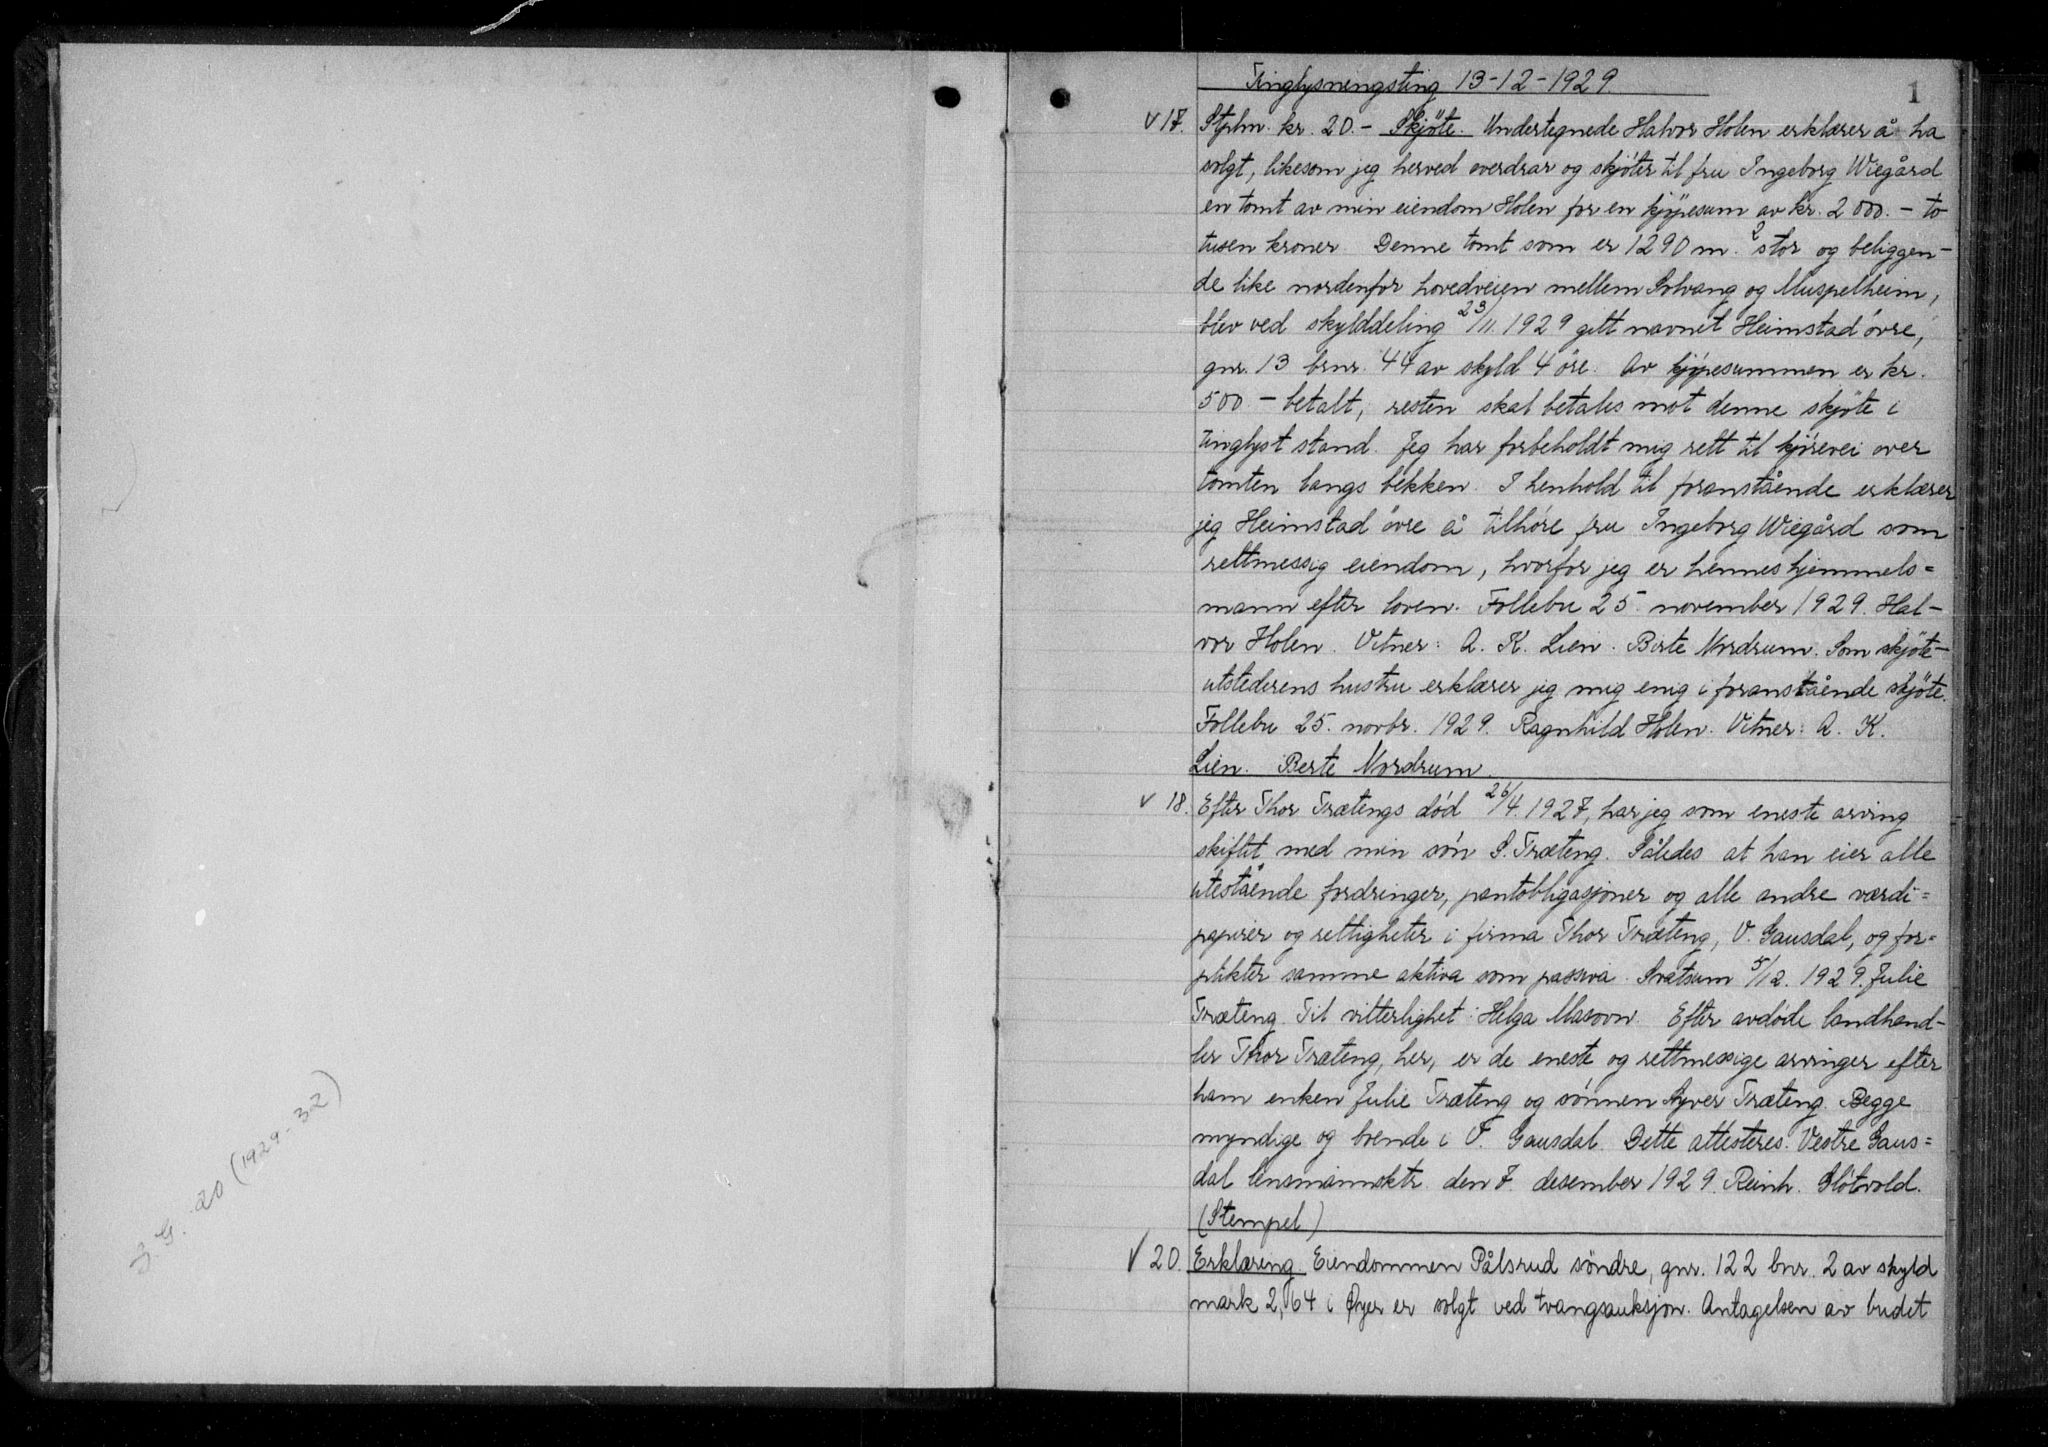 J.G. 20 (1929-32)
1
Tinglysnengsting 13-12-1929.
v 17. Stplm. kr. 20.- Skjöte. Undertegnede Halvor Holen erklærer å ha
solgt, likesom jeg herved overdrar og skjöter til fru Ingeborg Wiegård
en tomt av min eiendom Holen for en kjöpesum av kr. 2000.- to
tusen kroner. Denne tomt som er 1290 m.² stor og beliggen-
de like nordenfor hovedveien mellem Solvang og Muspelheim,
blev ved skylddeling 23/11 1929 gitt navnet Heimstad övre,
gnr. 13 brnr. 44 av skyld 4 öre. Av kjöpesummen er kr.
500.- betalt, resten skal betales mot denne skjöte i
tinglyst stand. Jeg har forbeholdt mig rett til kjörevei over
tomten langs bekken. I henhold til foranstående erklærer
jeg Heimstad övre å tilhöre fru Ingeborg Wiegård som
rettmessig eiendom, hvorfor jeg er hennes hjemmels=
mann efter loven. Follebu 25 november 1929. Hal-
vor Holen. Vitner: A. K. Lien. Berte Nordrum. Som skjöte-
utstederens hustru erklærer jeg mig enig i foranstående skjöte.
Follebu 25. novbr. 1929. Ragnhild Holen. Vitner: A. K.
Lien. Berte Nordrum.
v 18. Efter Thor Trætengs död 26/4. 1927, har jeg som eneste arving
skiftet med min sön S. Træteng. Således at han eier alle
utestående fordringer, pantobligasjoner og alle andre værdi=
papirer og rettigheter i firma Thor Træteng, V. Gausdal, og for=
plikter samme aktiva som passiva. Svatsum 5/12. 1929. Julie
Træteng. Til vitterlighet: Helga Masovn. Efter avdöde landhand-
ler Thor Træteng, her, er de eneste og rettmessige arvinger efter
ham enken Julie Træteng og sönnen Syver Træteng. Begge
myndige og boende i V. Gausdal. Dette attesteres. Vestre Gaus=
dal lensmannsktr. den 7. desember 1929. Reinh. Slötvold.
(Stempel)
v 20. Erklæring. Eiendommen Pålsrud söndre, gnr. 122 bnr. 2 av skyld
mark 2,64 i Öyer er solgt ved tvangsauksjon. Antagelsen av budet